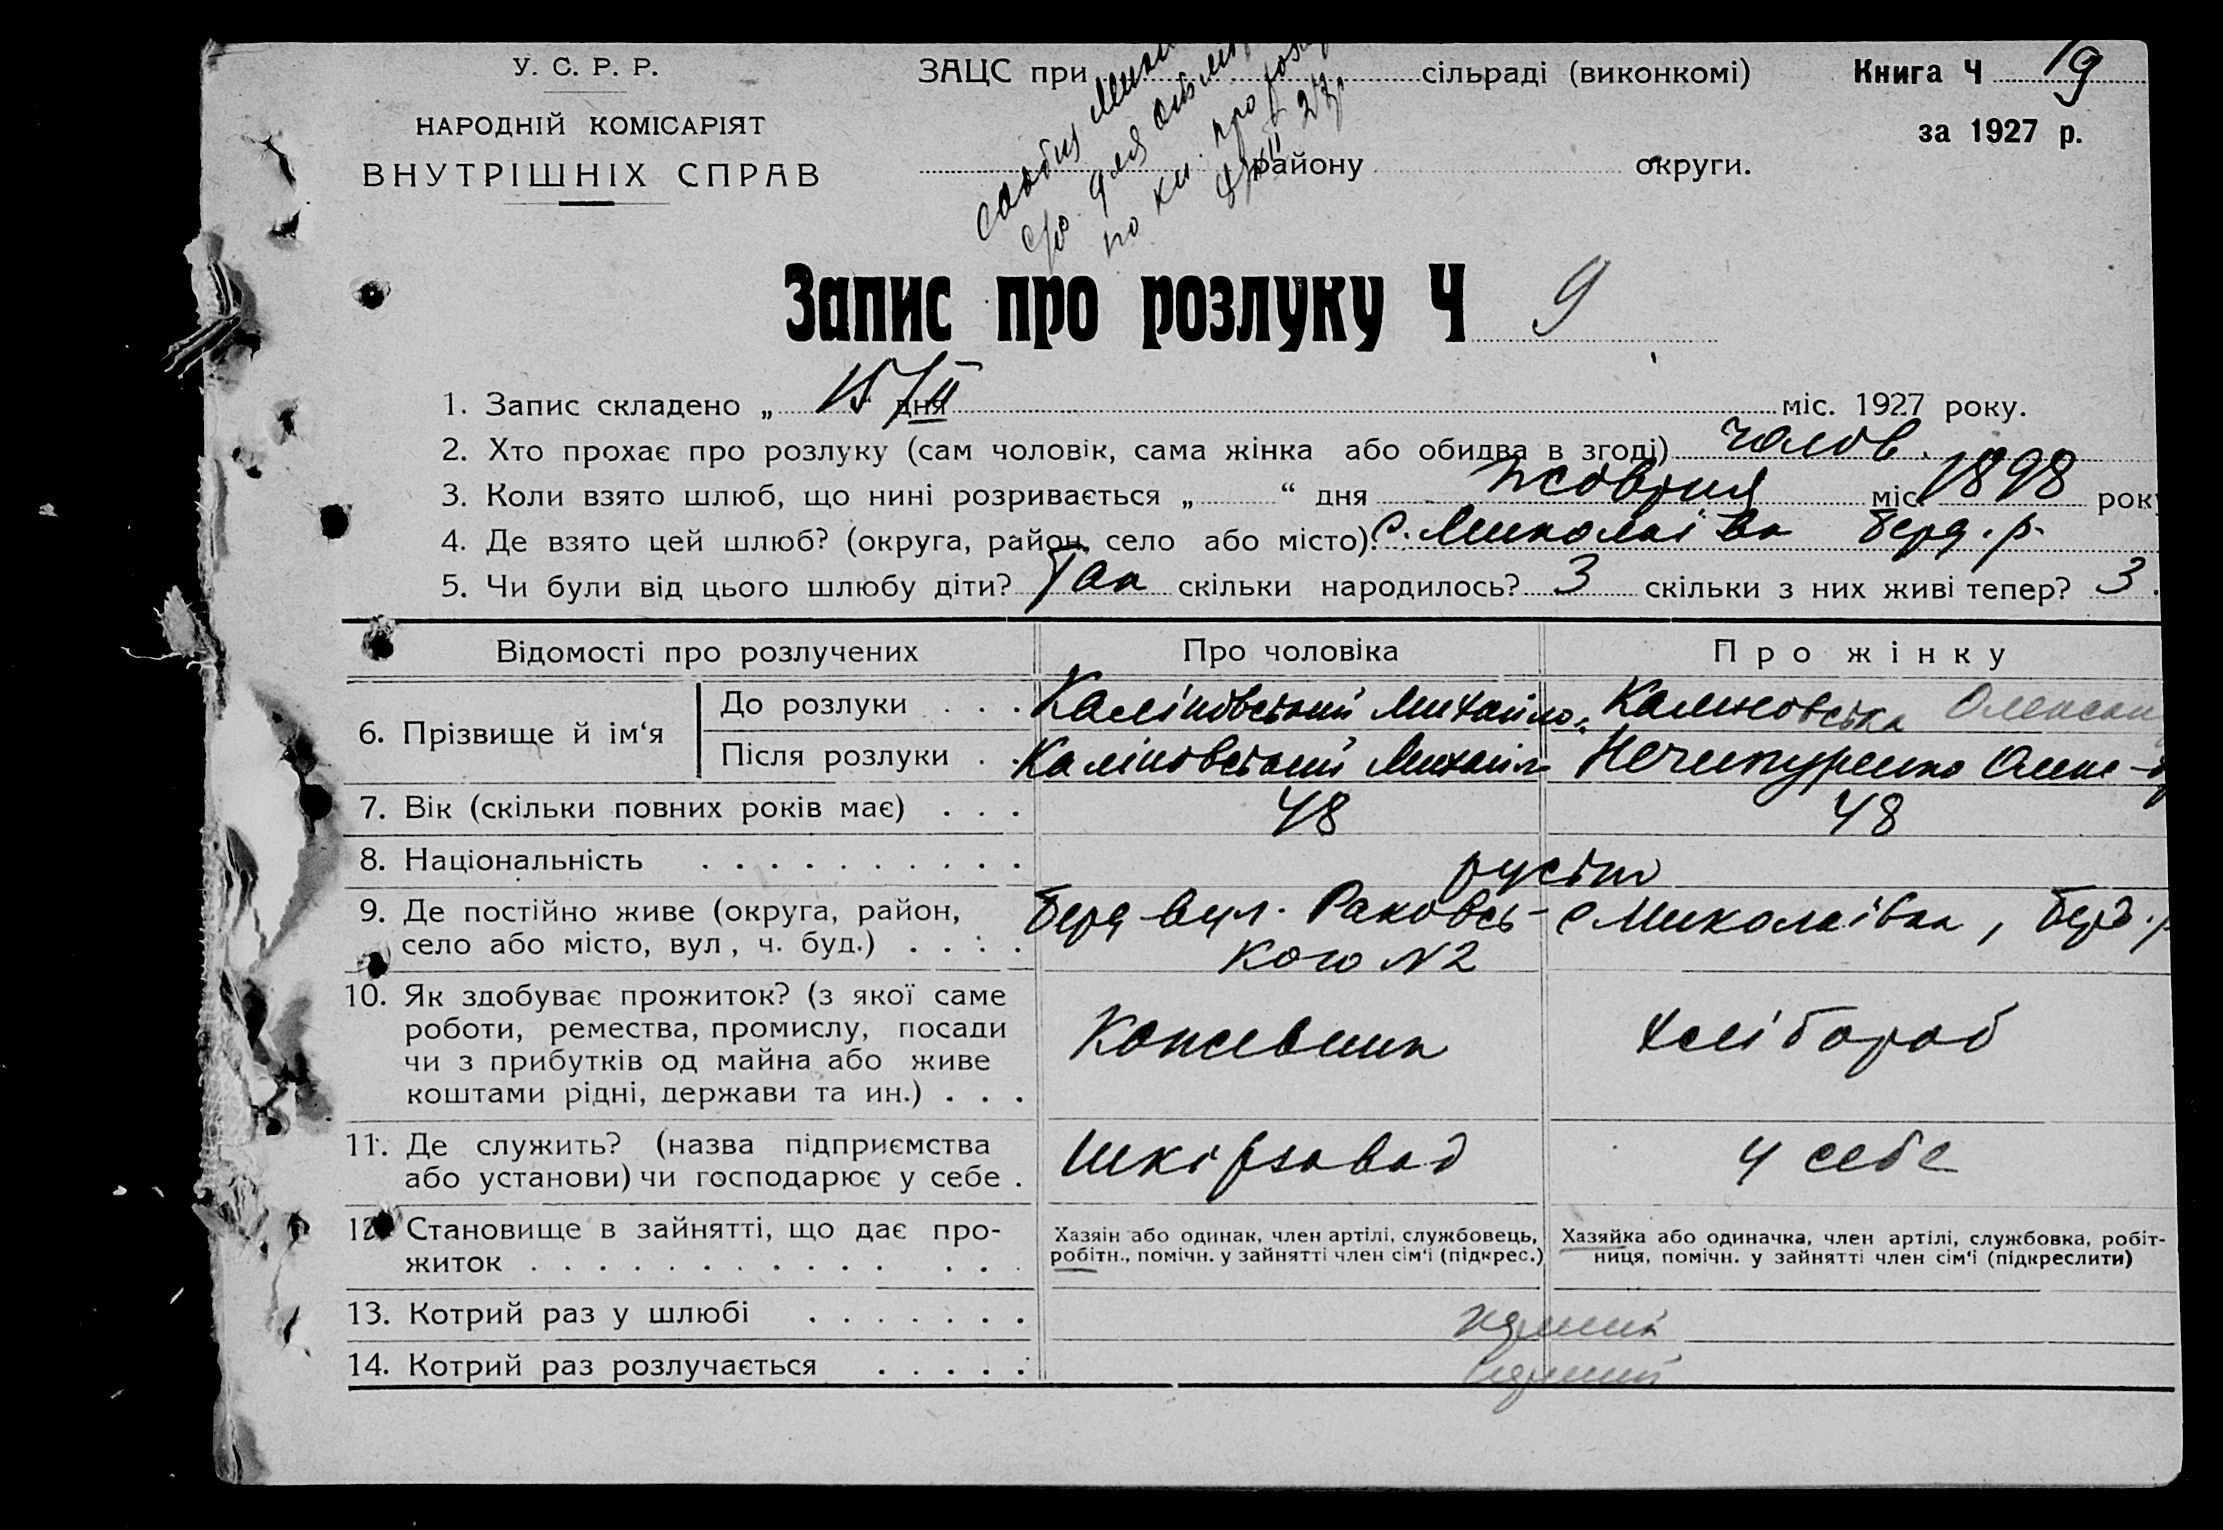 У. С. Р. Р.
НАРОДНІЙ КОМІСАРІЯТ
ВНУТРІШНІХ СПРАВ
ЗАЦС при сільраді (виконкомі)
району округи.
Книга Ч 19
за 1927 р.
по кн. про
Запис про розлуку Ч 9
1. Запис складено „ 15/II дня міс. 1927 року.
2. Хто прохає про розлуку (сам чоловік, сама жінка або обидва в згоді) чолов.
3. Коли взято шлюб, що нині розривається „ “ дня жовтня міс. 1898 року
4. Де взято цей шлюб? (округа, район, село або місто). с. Миколаївка берд. р.
5. Чи були від цього шлюбу діти? Так скільки народилось? 3 скільки з них живі тепер? 3.
Відомості про розлучених Про чоловіка Про жінку
6. Прізвище й ім‘я
До розлуки . . . Каліновський Михайло. Калиновська Олексан
Після розлуки . . Каліновський Михайло Нечипуренко Олек-
7. Вік (скільки повних років має) . . . 48 48
8. Національність . . . . . . . . . . русіт
9. Де постійно живе (округа, район, Берд вул. Раковсь- с Миколаівка, Берд. р
село або місто, вул , ч. буд.) . . . . кого N2
10. Як здобуває прожиток? (з якої саме
роботи, ремества, промислу, посади Кожевник Хлібороб
чи з прибутків од майна або живе
коштами рідні, держави та ин.) . . .
11. Де служить? (назва підприємства Шкірзавод У себе
або установи) чи господарює у себе .
12. Становище в зайнятті, що дає про- Хазяїн або одинак, член артілі, службовець, Хазяйка або одиначка, член артілі, службовка, робіт-
житок . . . . . . . . . . . . . . робітн., помічн. у зайнятті член сім‘ї (підкрес.) ниця, помічн. у зайнятті член сім‘ї (підкреслити)
13. Котрий раз у шлюбі . . . . . . .
14. Котрий раз розлучається . . . . .